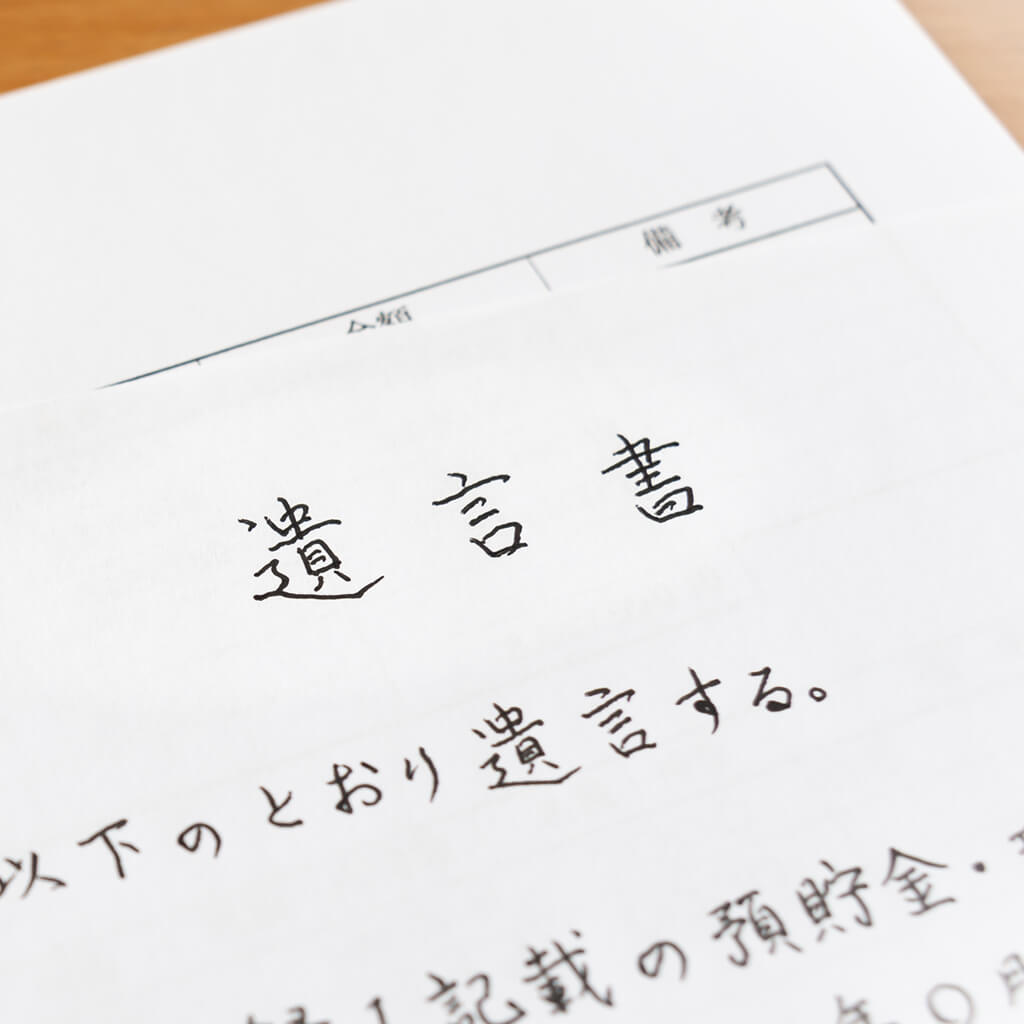 備考
金額
遺言書
以下のとおり遺言する。
記載の預貯金・
年〇月